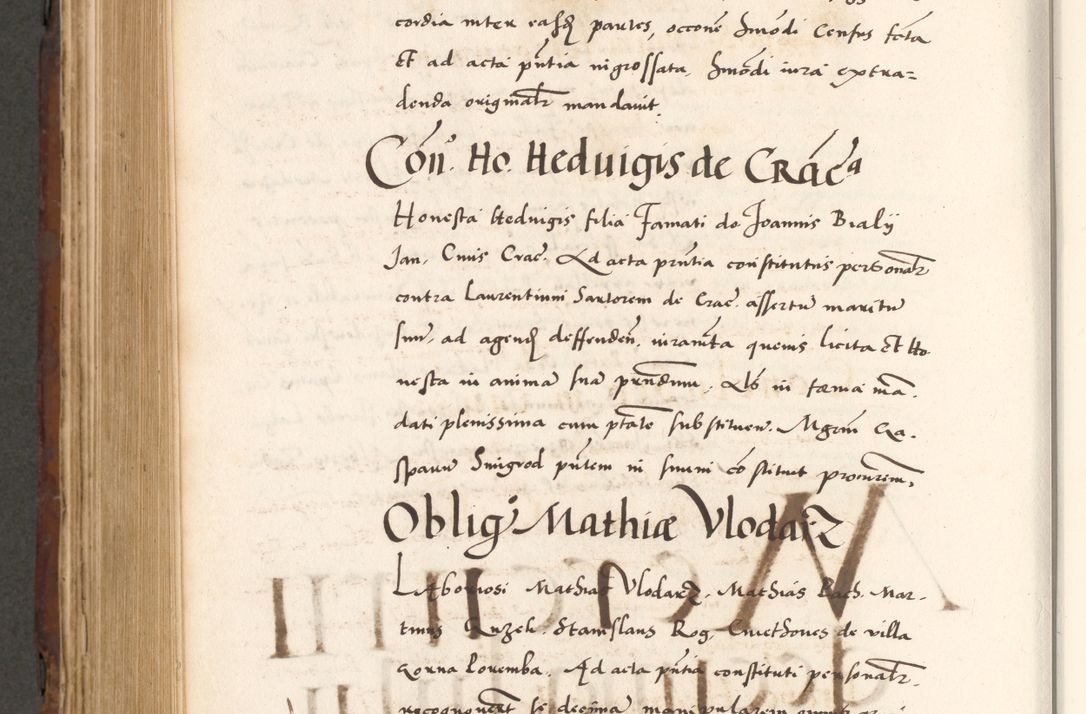 cordia inter easdē partes, occone Imōdi Census fcta
Et ad acta pn̄tia ingrossata, Imōdi iura extra=
denda originalr mandauit.
Con. Ho. Heduigis de Crac
Honesta Heduigis filia Famati do Joannis Bialy
Jan. Ciuis Crac. Ad acta pn̄tia constitutus personalr
contra Laurentium Sartorem de Crac. assertū maritū
suū, ad agend deffenden. iuramta queuis licita Et Ho
nesta in anima sua pnd̄um. Ab in forma mā.
dati plenissima cum ptāte substituen. Mgrm Ga.
sparū Smigrod pn̄tem in suum cōstituit procurem,
Oblig. Mathiæ Vlodarz
Laboriosi Mathias Vlodarz. Mathias Bach. Mar.
tinus Kuzel. Stanislaus Rog. Cmethones de villa
Gorna Poremba. Ad acta pn̄tia constituti personalr.
recognouert se decima manipularem